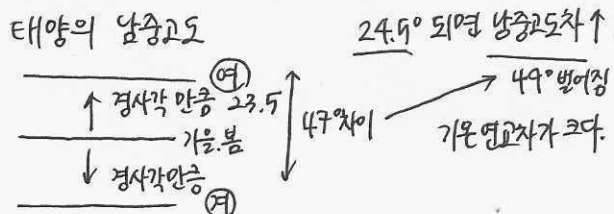 태양의 남중고도
여
경사각 만큼 23.5
가을.봄
경사각만큼
겨
47°차이
24.5° 되면 남중고도차↑
49° 벌어짐
기온 연교차가 크다.